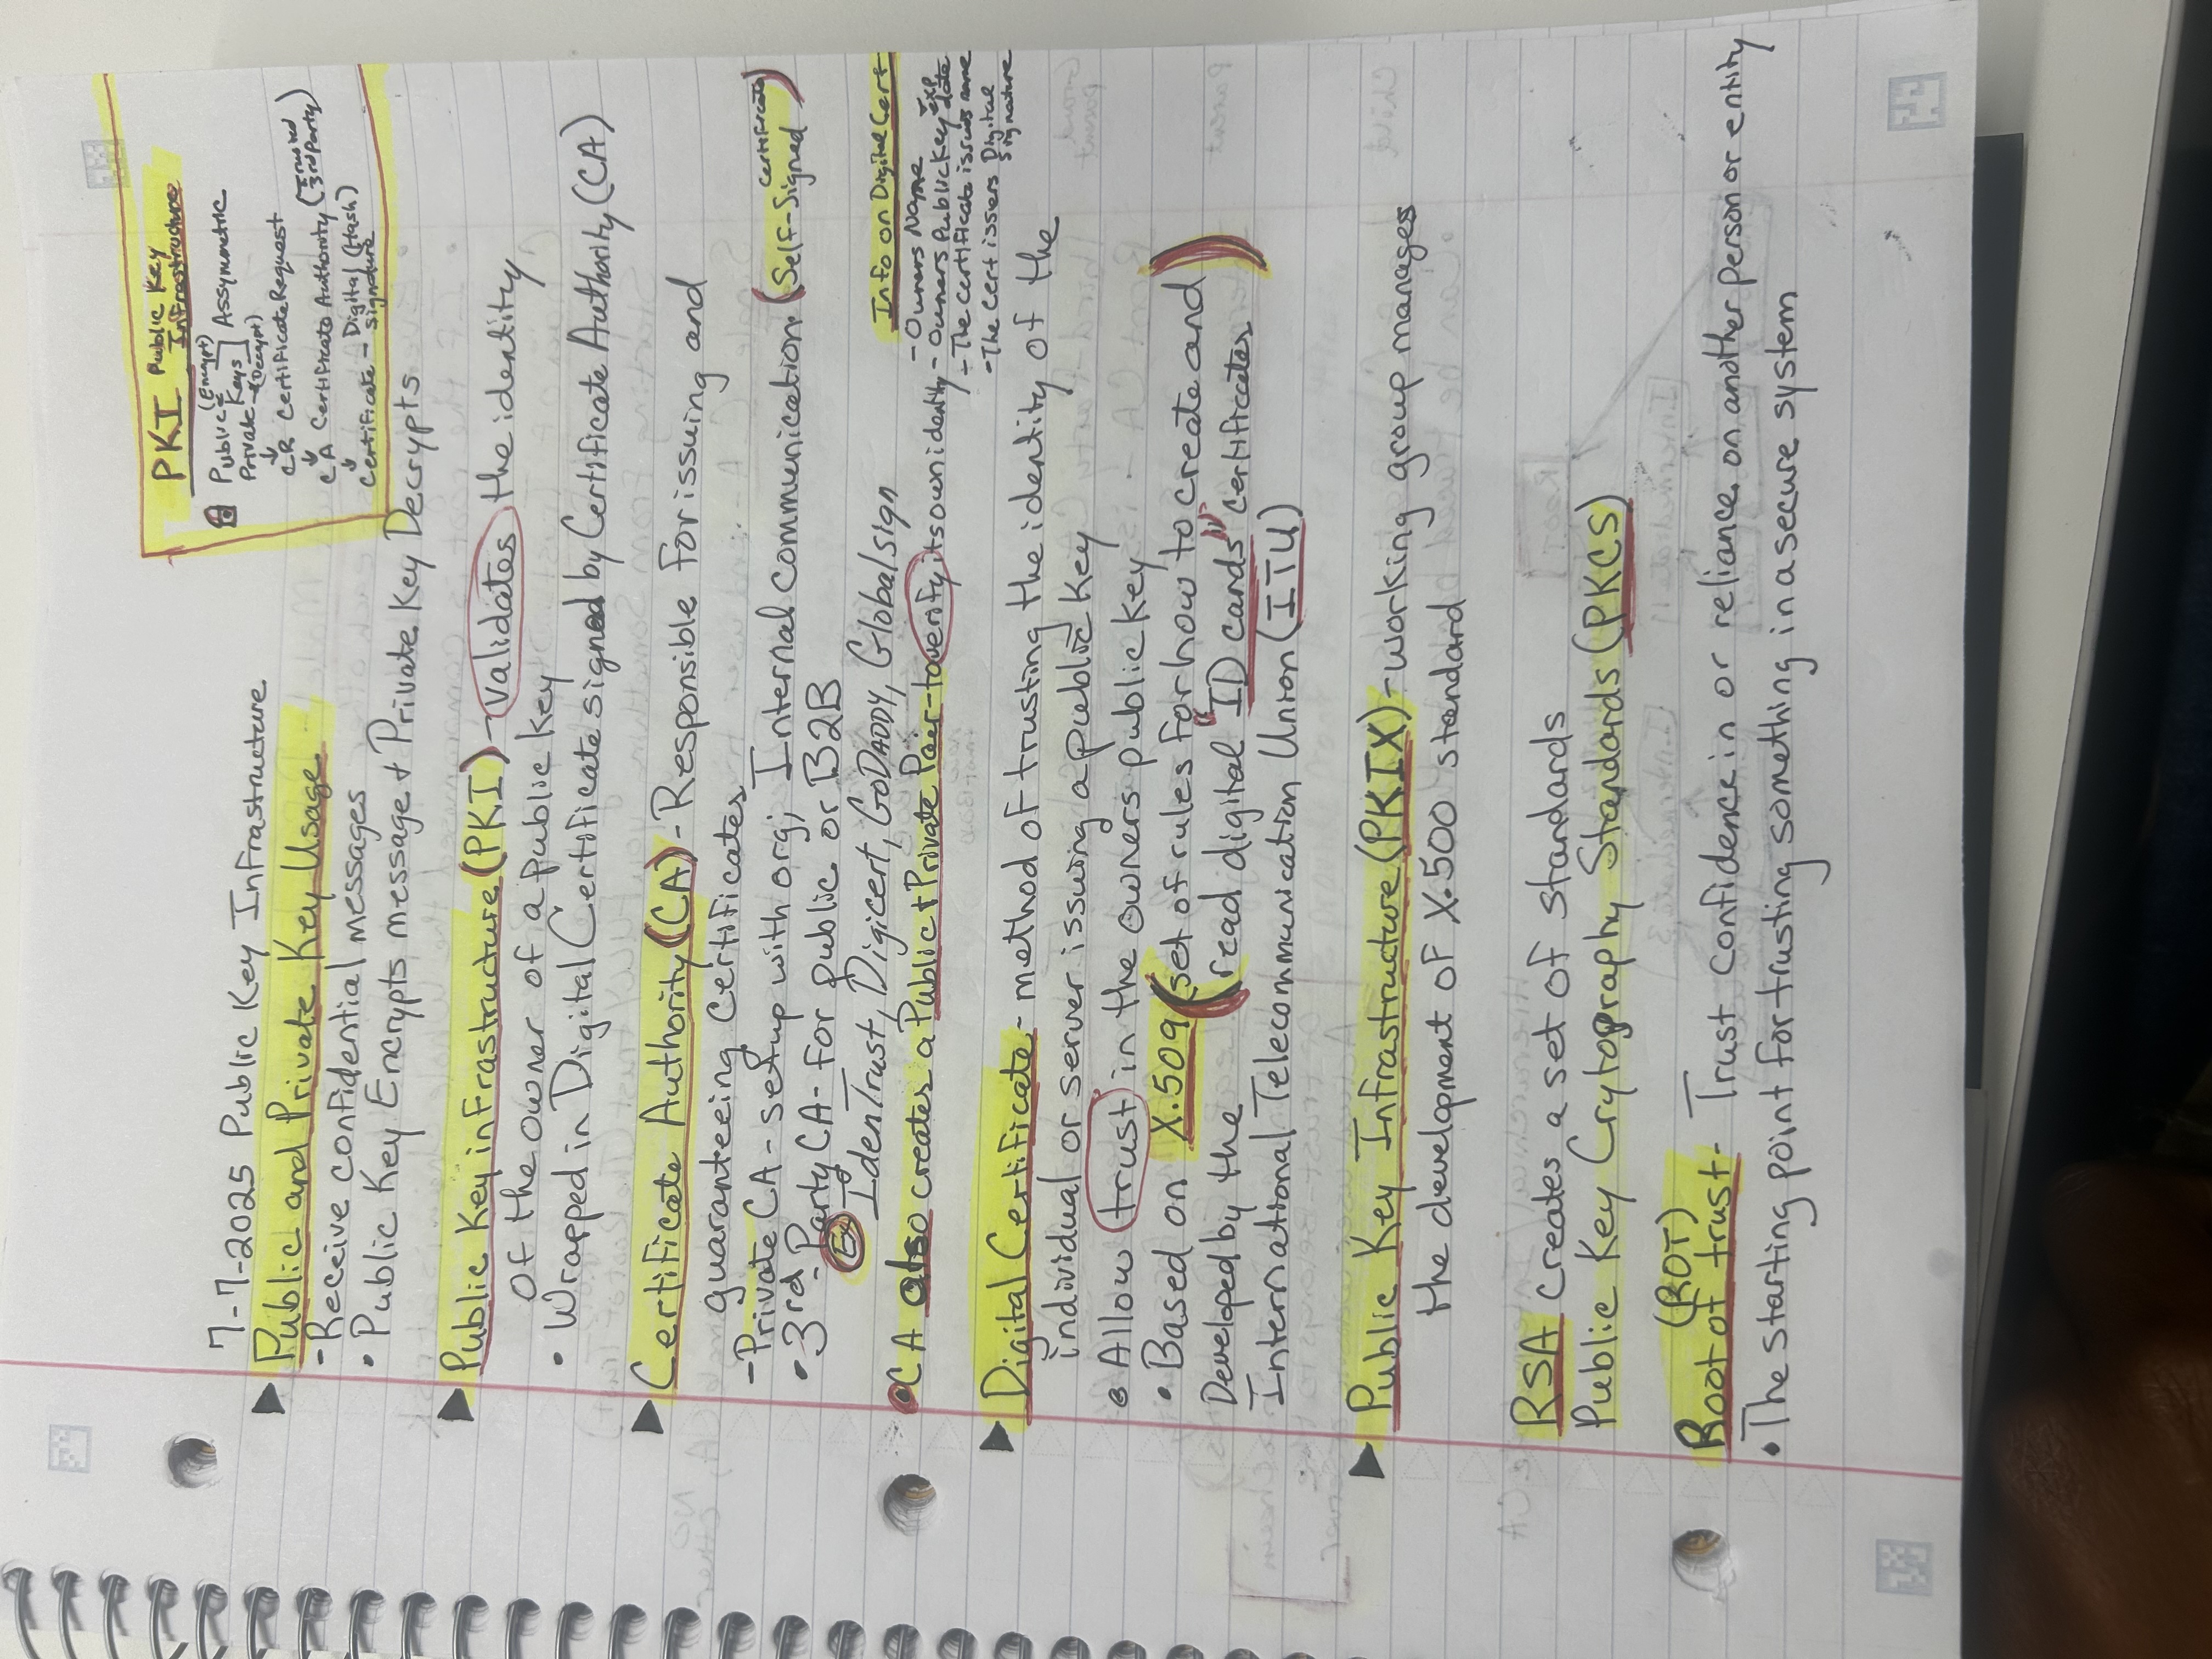 PKI Public Key
Infrastructure
(Encrypt)
Public
Keys ] Assymmetric
Private (Decrypt)
↓
CR Certificate Request
↓
CA Certificate Authority (Trusted 3rd Party)
↓
Certificate - Digital (Hash) Signature
7-7-2025 Public Key Infrastructure
Public and Private Key Usage
- Receive confidential messages
• Public Key Encrypts message + Private Key Decrypts
Public Key infrastructure (PKI) - validates the identity
of the owner of a public key
• Wrapped in Digital Certificate signed by Certificate Authority (CA)
Certificate Authority (CA) - Responsible for issuing and
guaranteeing Certificates
- Private CA - setup with org; Internal communication (Self-Signed certificate)
• 3rd - Party CA - for public or B2B
Ex IdenTrust, Digicert, GoDADDY, Globalsign
• CA also creates a Public + Private Pair - to verify its own identity
Info on Digital Cert
- Owners Name
- Owners Public Key exp date
- The certificate name
- The Cert issers Digital
Signature
Digital Certificate - method of trusting the identity of the
individual or server issuing a public key
• Allow trust in the owners public key
• Based on X.509 (set of rules for how to create and
Developed by the read digital "ID cards" certificates)
International Telecommunication Union (ITU)
Public Key Infrastructure (PKIX) - working group manages
the development of X.500 standard
RSA creates a set of standards
Public Key Crytography Standards (PKCS)
(ROT)
Root of trust - Trust confidence in or reliance on another person or entity
• The starting point for trusting something in a secure system